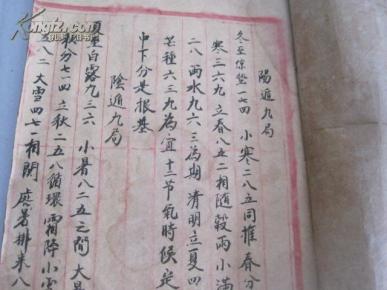 陽遁九局
冬至惊蛰一七四 小寒二八五同推 春分
寒三六九 立春八五二相隨 穀雨小滿
二八 雨水九六三為期 清明立夏四
芒種六三九為宜 十二节氣時候定
中下分是根基
陰遁九局
夏至白露九三六 小暑八二五之間
秋分七一四 立秋二五八循環 霜降小雪
八二 大雪四七一相関 處暑排来八